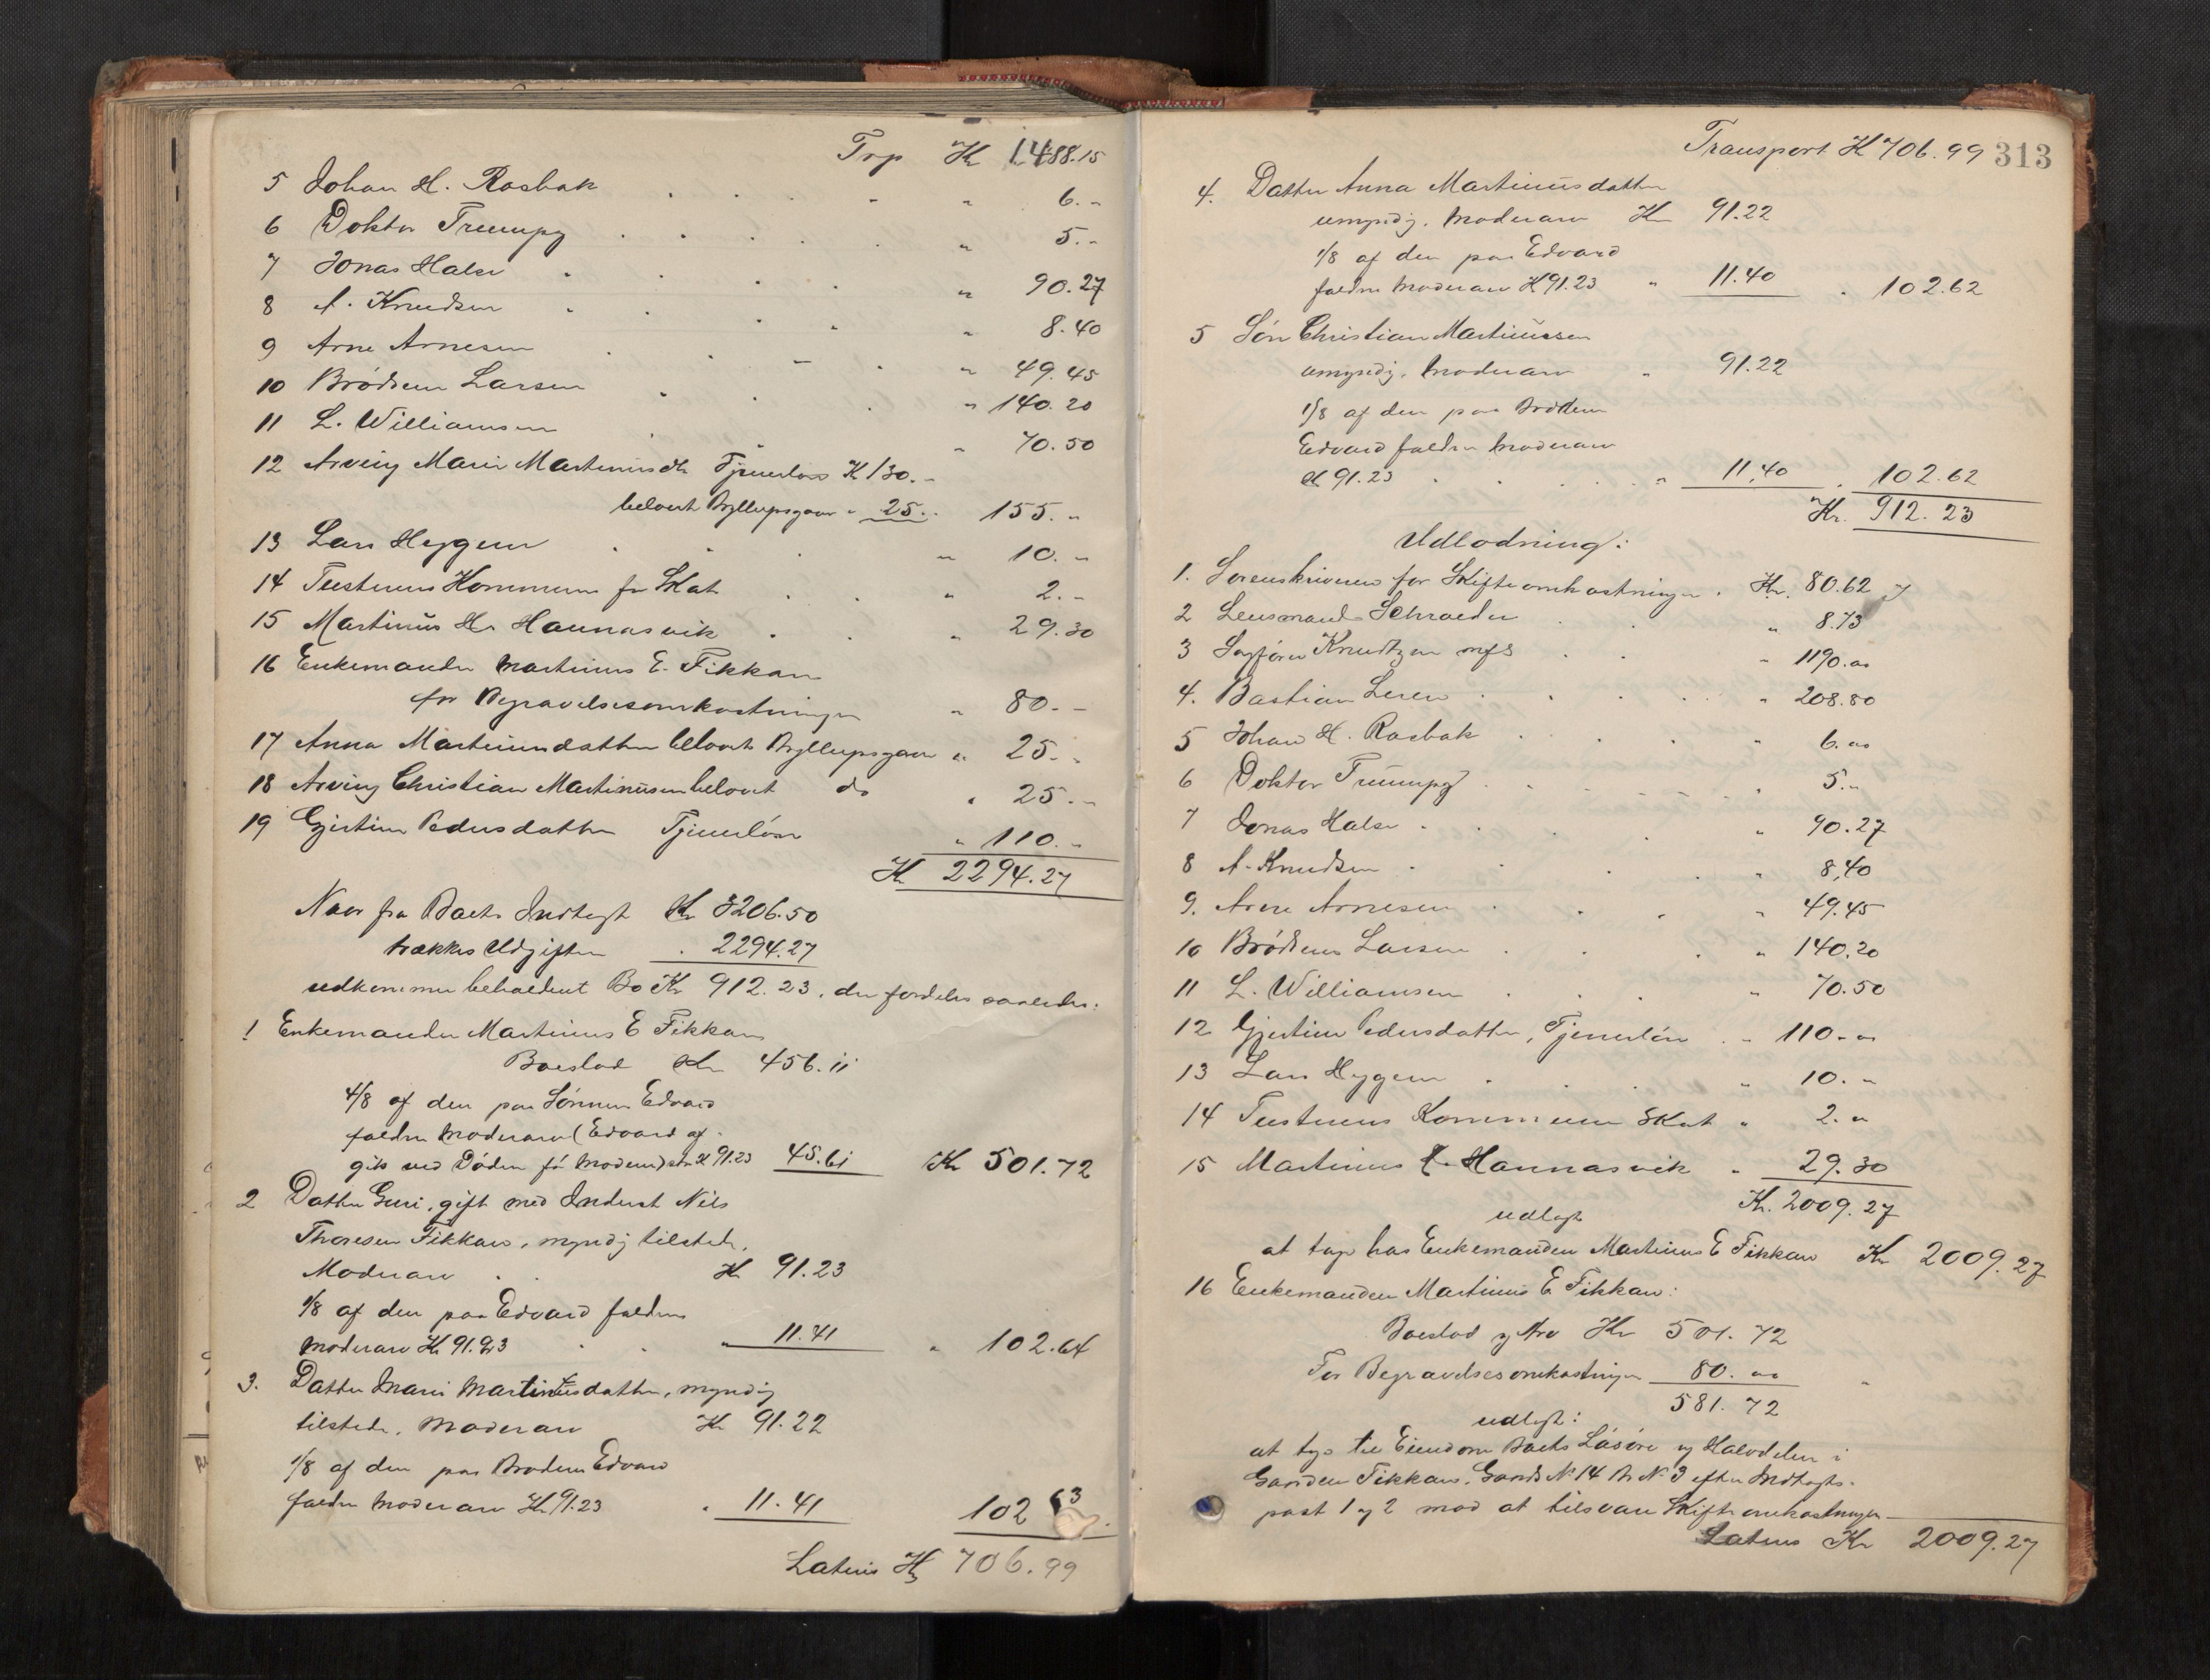 Trp Kr 1488.15
5 Johan H. Rosbak " 6.-
6 Doktor Trumpy " 5.-
7 Jonas Halse " 90.27
8 A. Knudsen " 8.40
9 Arne Arnesen " 49.45
10 Brødrene Larsen " 140.20
11 L. Williamsen " 70.50
12 Arving Marie Martinusdtr Tjenerløn Kr 130.-
belovet Bryllupsgave " 25.- 155.-
13 Lars Heggem " 10.-
14 Tustnens Kommune for Skat " 2.-
15 Martinus H. Hannasvik " 29.30
16 Enkemanden Martinus E. Fikkan
for Begravelsesomkostninger " 80.-
17 Anna Martinusdatter belovet Bryllupsgave " 25.-
18 Arving Christian Martinusen belovet do " 25.-
19 Gjertine Pedersdatter Tjenerløn " 110.-
Kr 2294.27
Naar fra Boets Indtægt Kr 3206.50
trækkes Udgiften " 2294.27
udkommer beholdent Bo Kr 912.23, der fordeles saaledes:
1 Enkemanden Martinus E Fikkan
Boeslod Kr 456.11
4/8 af den paa Sønnen Edvard
faldne Moderarv (Edvard af-
gik ved Døden før Moderen) stor Kr 91.23 45.61 Kr 501.72
2 Datter Guri, gift med Inderst Nils
Thoresen Fikkan, myndig tilstede,
Moderarv Kr 91.23
1/8 af den paa Edvard faldne
Moderarv Kr 91.23 " 11.41 " 102.64
3. Datter Marie Martinusdatter, myndig
tilstede, Moderarv Kr 91.22
1/8 af den paa Broderen Edvard
faldne Moderarv Kr 91.23 " 11.41 102 63
Lateris Kr 706.99
Transport Kr 706.99 313
4. Datter Anna Martinusdatter
umyndig, Moderarv Kr 91.22
1/8 af den paa Edvard
faldne Moderarv Kr 91.23 " 11.40 " 102.62
5 Søn Christian Martinussen
umyndig, Moderarv " 91.22
1/8 af den paa Broderen
Edvard faldne Moderarv
Kr 91.23 " 11,40 " 102.62
Kr. 912.23
Udlodning:
1. Sorenskriveren for Skifteomkostninger Kr. 80.62
2 Lensmand Schrøder " 8.73
3 Sagfører Knudtzon mfs " 1190.00
4. Bastian Leren " 208.80
5 Johan H. Rosbak " 6.00
6 Doktor Trumpy " 5.-
7 Jonas Halse " 90.27
8 A. Knudsen " 8,40
9. Arne Arnesen " 49.45
10 Brødrene Larsen " 140.20
11 L. Williamsen " 70.50
12 Gjertine Pedersdatter, Tjenerløn " 110.00
13 Lars Heggem " 10.-
14 Tustnens Kommune Skat " 2.-
15 Martinus H. Hannasvik " 29.30
Kr. 2009.27
udlagt
at tage hos Enkemanden Martinus E Fikkan Kr 2009.27
16 Enkemanden Martinus E Fikkan:
Boeslod og Arv Kr 501.72
For Begravelsesomkostninger 80.00 "
581.72
udlagt:
at tage til Eiendom Boets Løsøre og Halvdelen i
Gaarden Fikkan, Gaards No 14 Br No 3 efter Indtægts-
post 1 og 2 mod at tilsvare Skifteomkostninger
Lateris Kr 2009.27